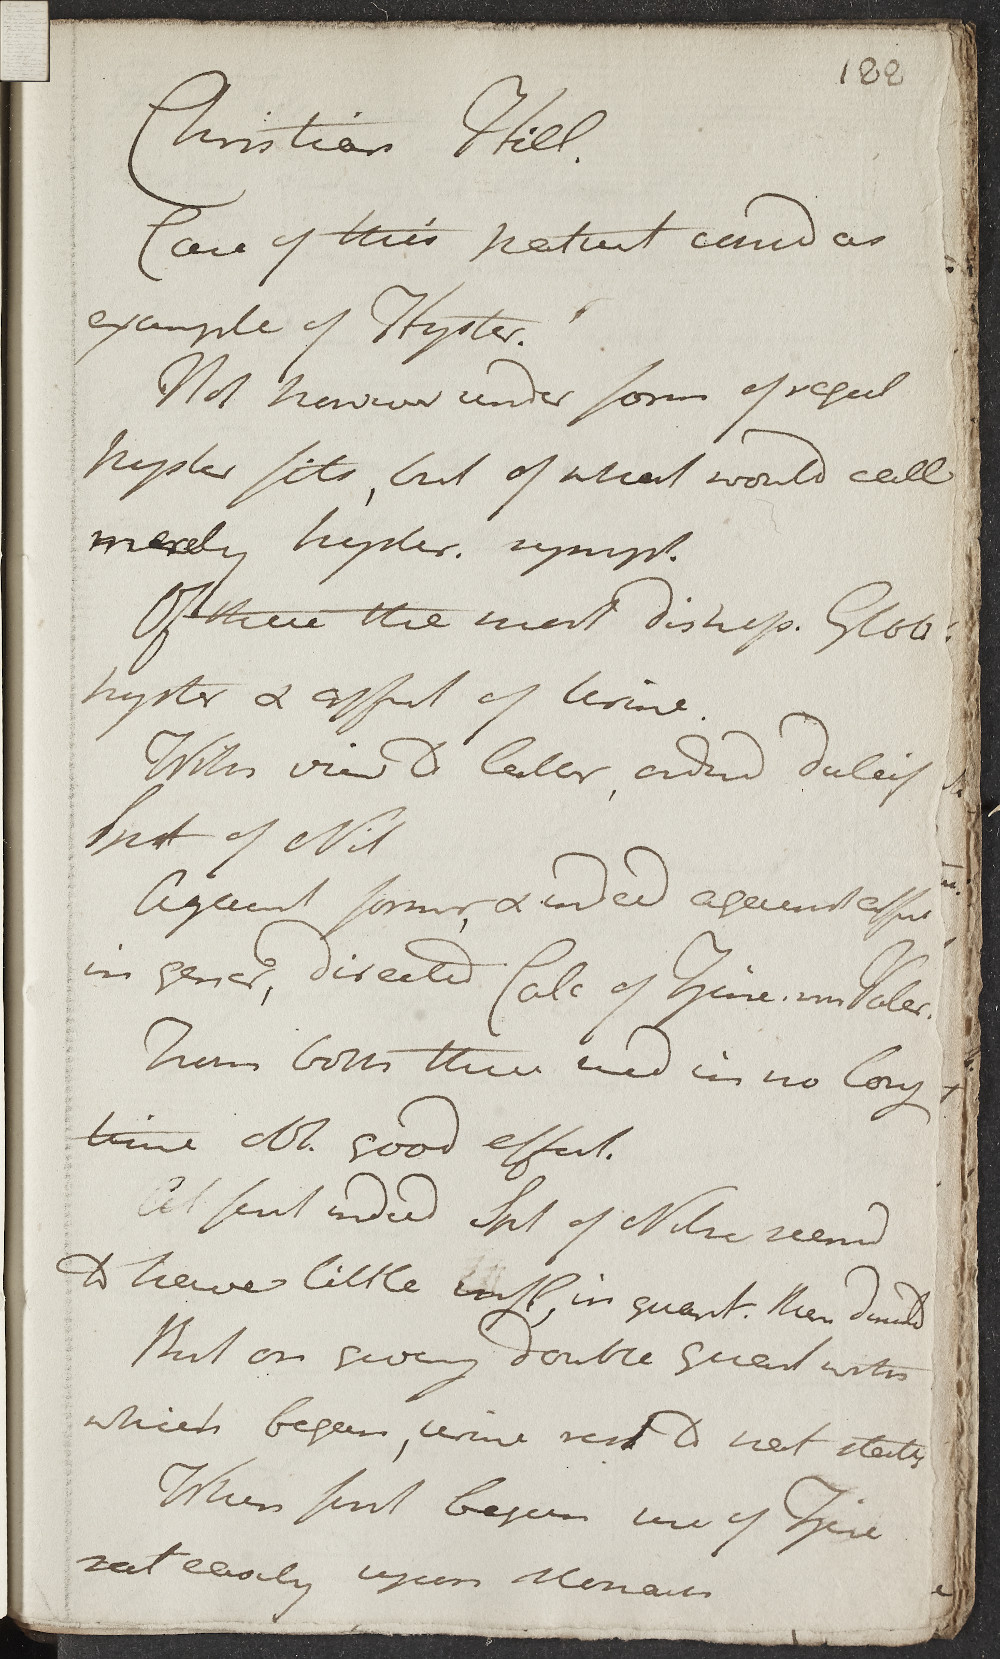 188
Christian Hill.
Case of this patient consid as
example of Hyster.
Not however under form of regul
hyster fits, but of what would call
merely hyster. sympt.
Of these the most distresg. Glob:
hyster & affect of Urine.
With view to latter, ordered dulcif
Spt of Nit
Against former, & indeed against affect
in gener, directed Calc of Zinc. Valer.
From both these used in no long
time obt. good effect.
At first indeed Spt of Nitre seemd
to have little infl, in quant. then
But on giving double quant with
which began, urine rest to nat state
When first began use of Zinc
sat easily upon stomach